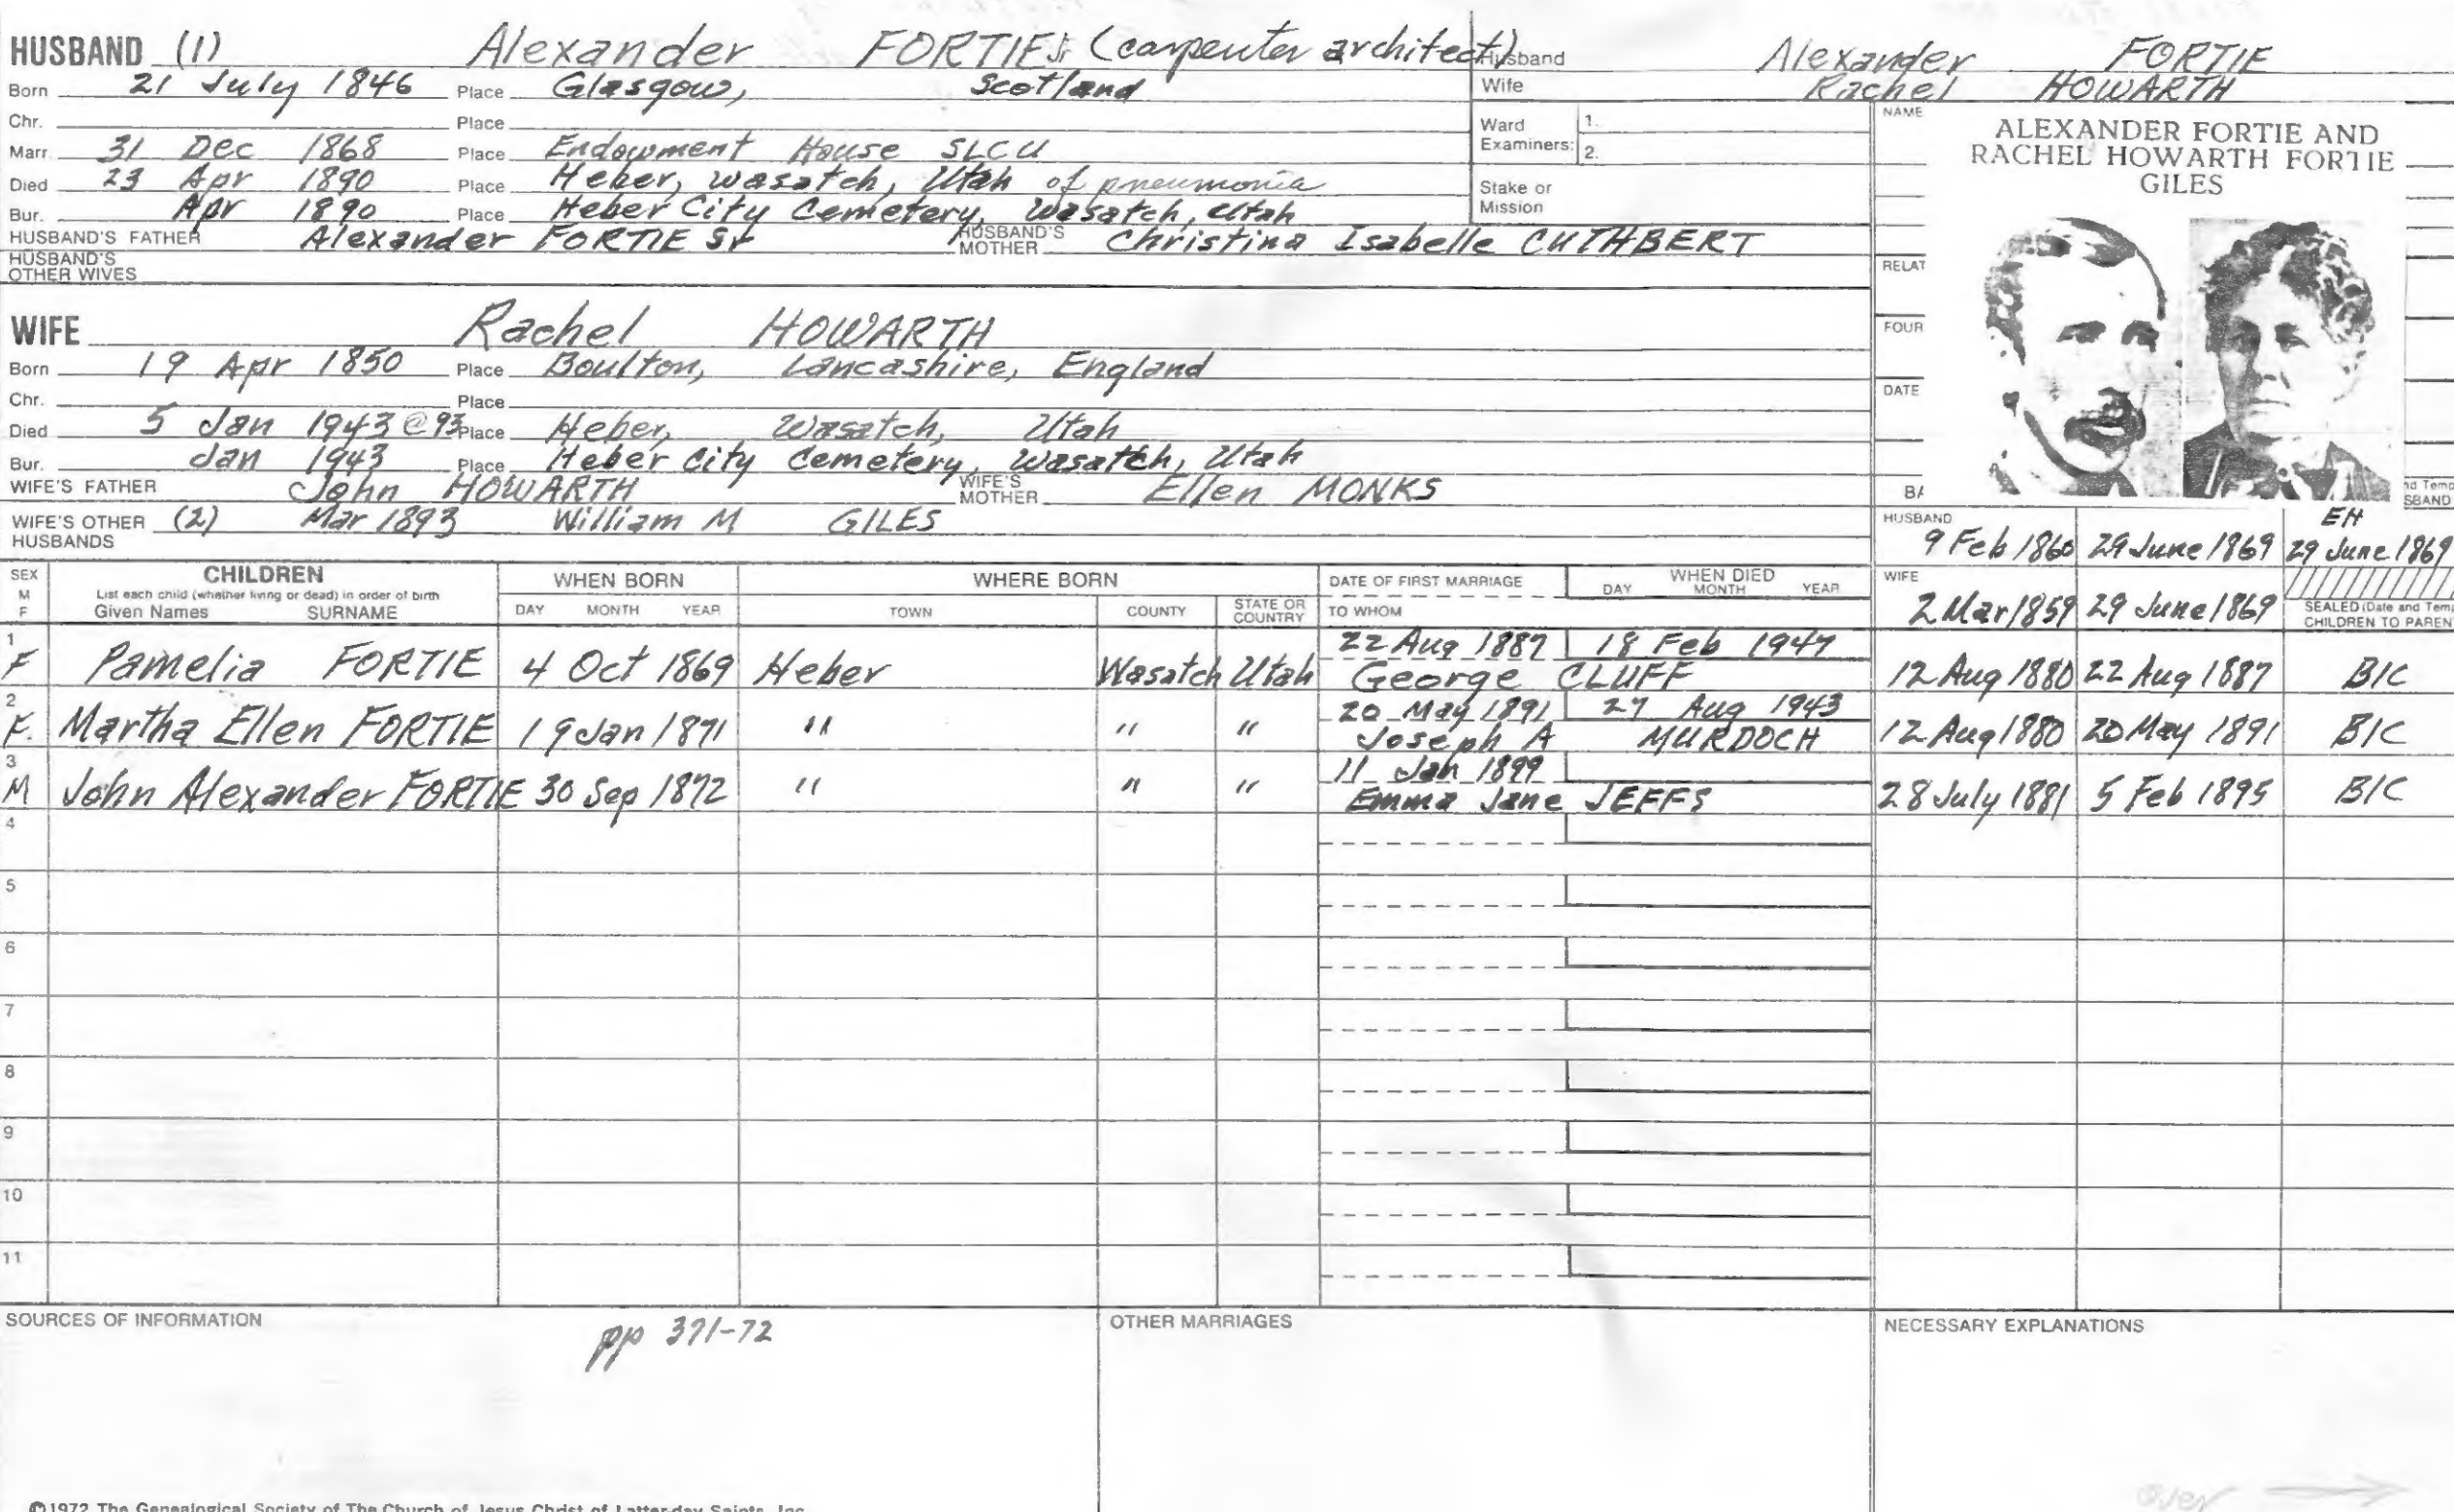 HUSBAND (1) Alexander FORTIE Jr (carpenter architect)
Born 21 July 1846 Place Glasgow, Scotland
Chr. Place
Marr. 31 Dec 1868 Place Endowment House SLCU
Died 23 Apr 1890 Place Heber, Wasatch, Utah of pneumonia
Bur. Apr 1890 Place Heber City Cemetery, Wasatch, Utah
HUSBAND'S FATHER Alexander FORTIE Sr HUSBAND'S MOTHER Christina Isabelle CUTHBERT
HUSBAND'S OTHER WIVES
Husband Alexander FORTIE
Wife Rachel HOWARTH
Ward Examiners: 1.
2.
Stake or Mission
NAME
ALEXANDER FORTIE AND
RACHEL HOWARTH FORTIE
GILES
RELAT
FOUR
DATE
BA
nd Temp
SBAND
WIFE Rachel HOWARTH
Born 19 Apr 1850 Place Boulton, Lancashire, England
Chr. Place
Died 5 Jan 1943 @ 93 Place Heber, Wasatch, Utah
Bur. Jan 1943 Place Heber City Cemetery, Wasatch, Utah
WIFE'S FATHER John HOWARTH WIFE'S MOTHER Ellen MONKS
WIFE'S OTHER HUSBANDS (2) Mar 1893 William M GILES
HUSBAND EH
9 Feb 1860 29 June 1869 29 June 1869
WIFE
2 Mar 1859 29 June 1869
SEALED (Date and Temp
CHILDREN TO PAREN
SEX M F CHILDREN WHEN BORN WHERE BORN DATE OF FIRST MARRIAGE WHEN DIED
List each child (whether living or dead) in order of birth
Given Names SURNAME DAY MONTH YEAR TOWN COUNTY STATE OR COUNTRY TO WHOM DAY MONTH YEAR
1 22 Aug 1887 18 Feb 1947
F Pamelia FORTIE 4 Oct 1869 Heber Wasatch Utah George CLUFF 12 Aug 1880 22 Aug 1887 BIC
2 20 May 1891 27 Aug 1943
F. Martha Ellen FORTIE 19 Jan 1871 " " " Joseph A MURDOCH 12 Aug 1880 20 May 1891 BIC
3 11 Jan 1899
M John Alexander FORTIE 30 Sep 1872 " " " Emma Jane JEFFS 28 July 1881 5 Feb 1895 BIC
4
5
6
7
8
9
10
11
SOURCES OF INFORMATION OTHER MARRIAGES NECESSARY EXPLANATIONS
pp 371-72
over
©1972 The Genealogical Society of The Church of Jesus Christ of Latter-day Saints, Inc.